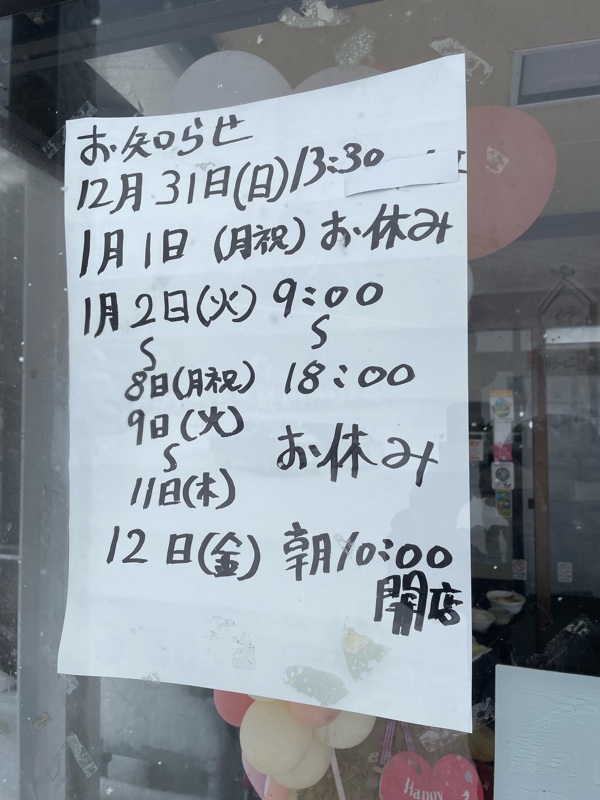 お知らせ
12月31日(日)13:30
1月1日(月祝)お休み
1月2日(火)9:00
〜 〜
8日(月祝)18:00
9日(火)
〜 お休み
11日(木)
12日(金)朝10:00
開店
Happy